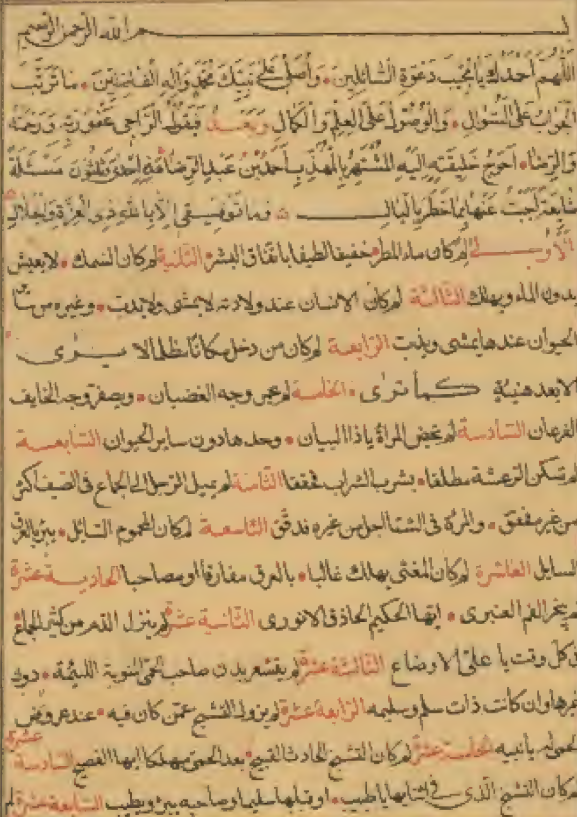 بسم الله الرحمن الرحيم
اللهم احمدك يا مجيب دعوة السائلين وأصلي على نبيك محمد وآله الفاضلين ما ترتب
الجواب على السؤال والوصول على العلم والكمال وبعد فيقول الراجي عفو ربه ورحمته
والرضا احوج خليقته اليه المشتهر بالمهذب احمد بن عبد الرضا هذه احدى وثلثون مسئلة
اجبت عنها بما خطر بالبال وما توفيقي الا بالله ذي العزة والجلال
الأولى لم كان ماء المطر خفيفا لطيفا باتفاق البشر الثانية لم كان السمك لا يعيش
بدون الماء ويهلك الثالثة لم كان الانسان عند ولادته لا يمشي ولا يدب وغيره من
الحيوان عندها يمشي ويذب الرابعة لم كان من دخل مكانا مظلما لا يرى
الا بعد هنيئة كما ترى الخامسة لم يحمر وجه الغضبان ويصفر وجه الخايف
الفزعان السادسة لم تحيض المرأة يا ذا البيان وحدها دون ساير الحيوان السابعة
لم تسكن الرعشة مطلقا بشرب الشراب محققا الثامنة لم يميل الرجل الى الجماع في الصيف اكثر
من غير مفقق والمرأة في الشتا اجل من غيره فدقق التاسعة لم كان المحموم السائل يبرء بالعرق
السايل العاشرة لم كان المغشى يهلك غالبا بالعرق مفارقا او مصاحبا الحادية عشرة
لم يبخر الفم العنبري ايها الحكيم الحاذق الانوري الثانية عشرة لم ينزل الدم من كثير الجماع
في كل وقت يا علي الاوضاع الثالثة عشرة لم يقشعر بدن صاحب الحمى النوبية اللئيمة دون
غيرها وان كانت ذات سلم وسليمه الرابعة عشرة لم يزول التشنج عمن كان فيه عند عروض
الحمى لم يا نبيه الخامسة عشرة لم كان التشنج الحادث القبيح بعد الحمى مهلكا ايها الفصيح السادسة عشرة
لم كان التشنج الذي في اثنائها يا طبيب او قبلها سليما وصاحبه يبرء ويطيب السابعة عشرة لم